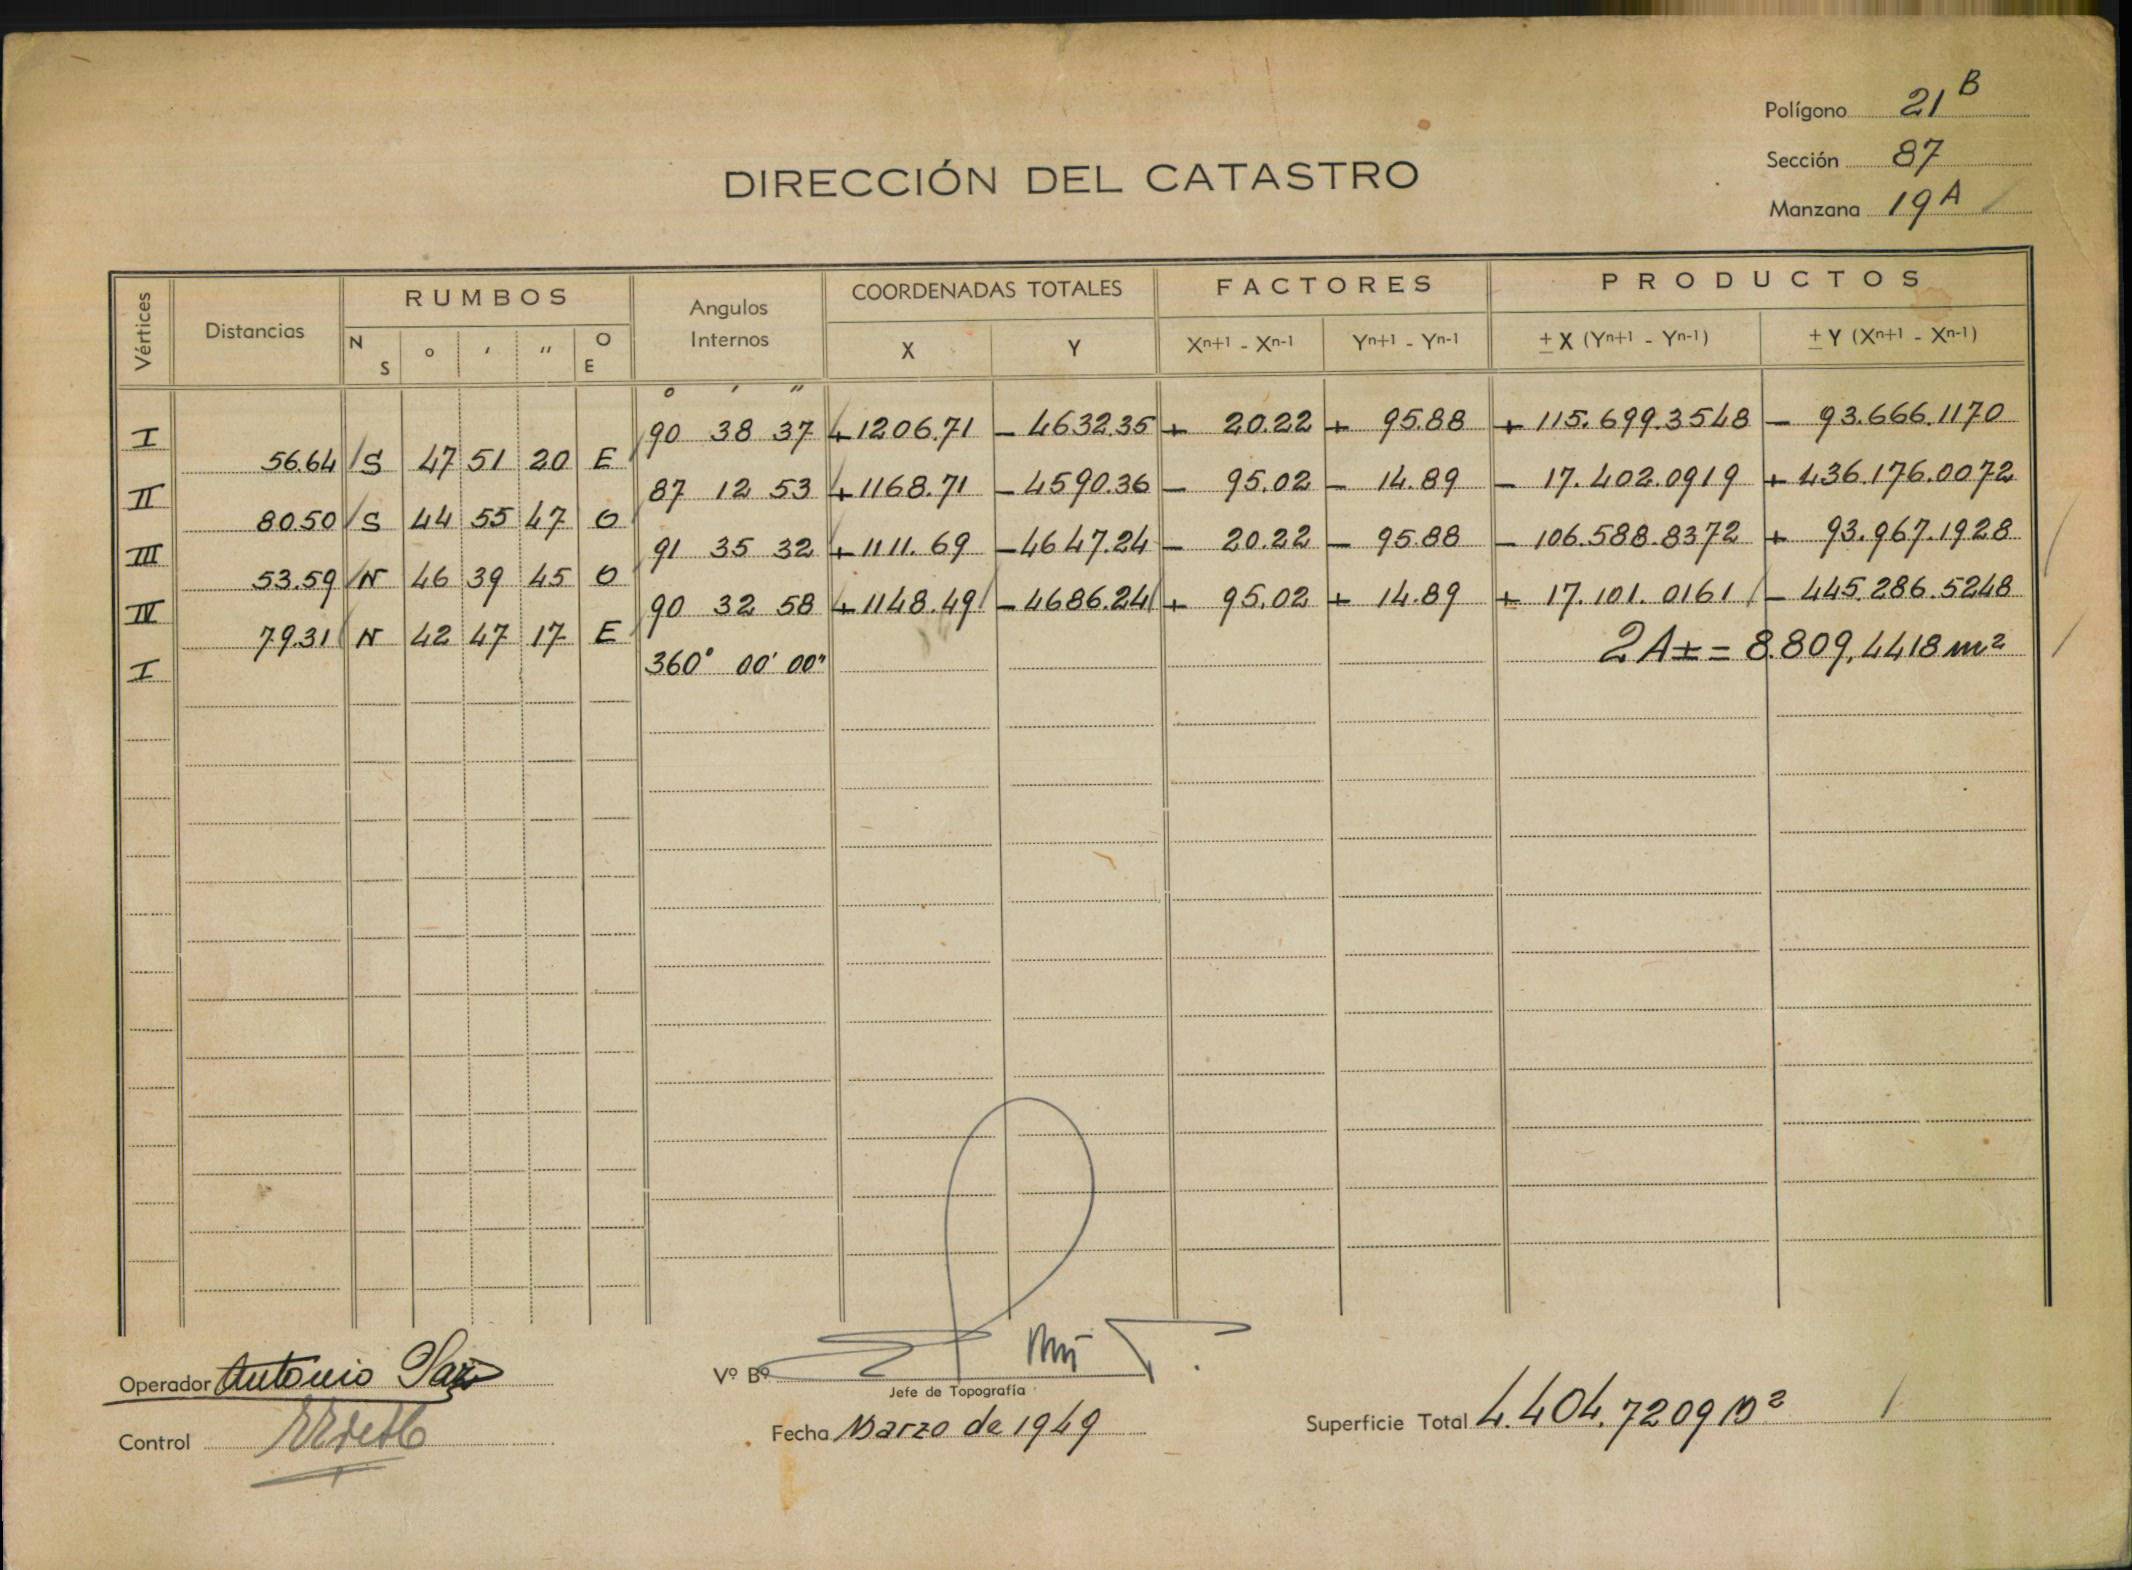 Polígono 21 B
Sección 87
Manzana 19 A
DIRECCIÓN DEL CATASTRO
Vértices Distancias RUMBOS Angulos Internos COORDENADAS TOTALES FACTORES PRODUCTOS
N S ° ′ ″ O E X Y Xn+1 - Xn-1 Yn+1 - Yn-1 ± X (Yn+1 - Yn-1) ± Y (Xn+1 - Xn-1)
° ′ ″
I 90 38 37 +1206.71 -4632.35 + 20.22 + 95.88 + 115.699.3548 - 93.666.1170
56.64 S 47 51 20 E
II 87 12 53 +1168.71 -4590.36 - 95.02 - 14.89 - 17.402.0919 + 436.176.0072
80.50 S 44 55 47 O
III 91 35 32 +1111.69 -4647.24 - 20.22 - 95.88 - 106.588.8372 + 93.967.1928
53.59 N 46 39 45 O
IV 90 32 58 +1148.49 -4686.24 + 95.02 + 14.89 + 17.101.0161 - 445.286.5248
79.31 N 42 47 17 E
2A± = 8.809,4418 m²
I 360° 00′ 00″
Operador Antonio
Vº Bº
Jefe de Topografía
Control
Fecha Marzo de 1949
Superficie Total 4.404.7209 m²